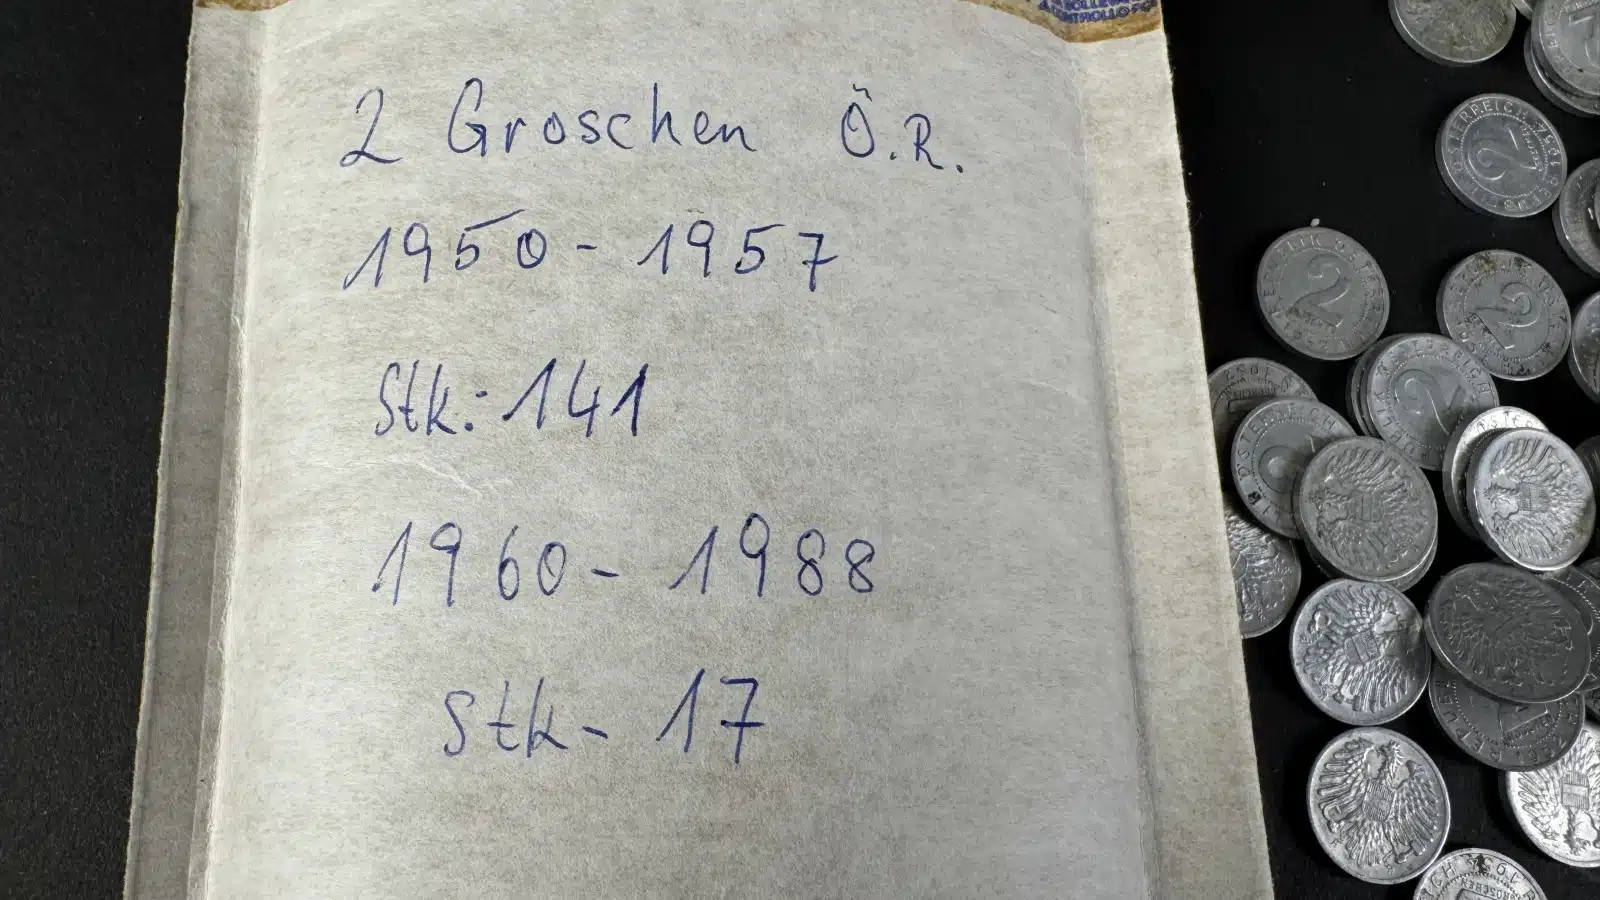 2 Groschen Ö.R.
1950 - 1957
Stk.: 141
1960 - 1988
Stk - 17